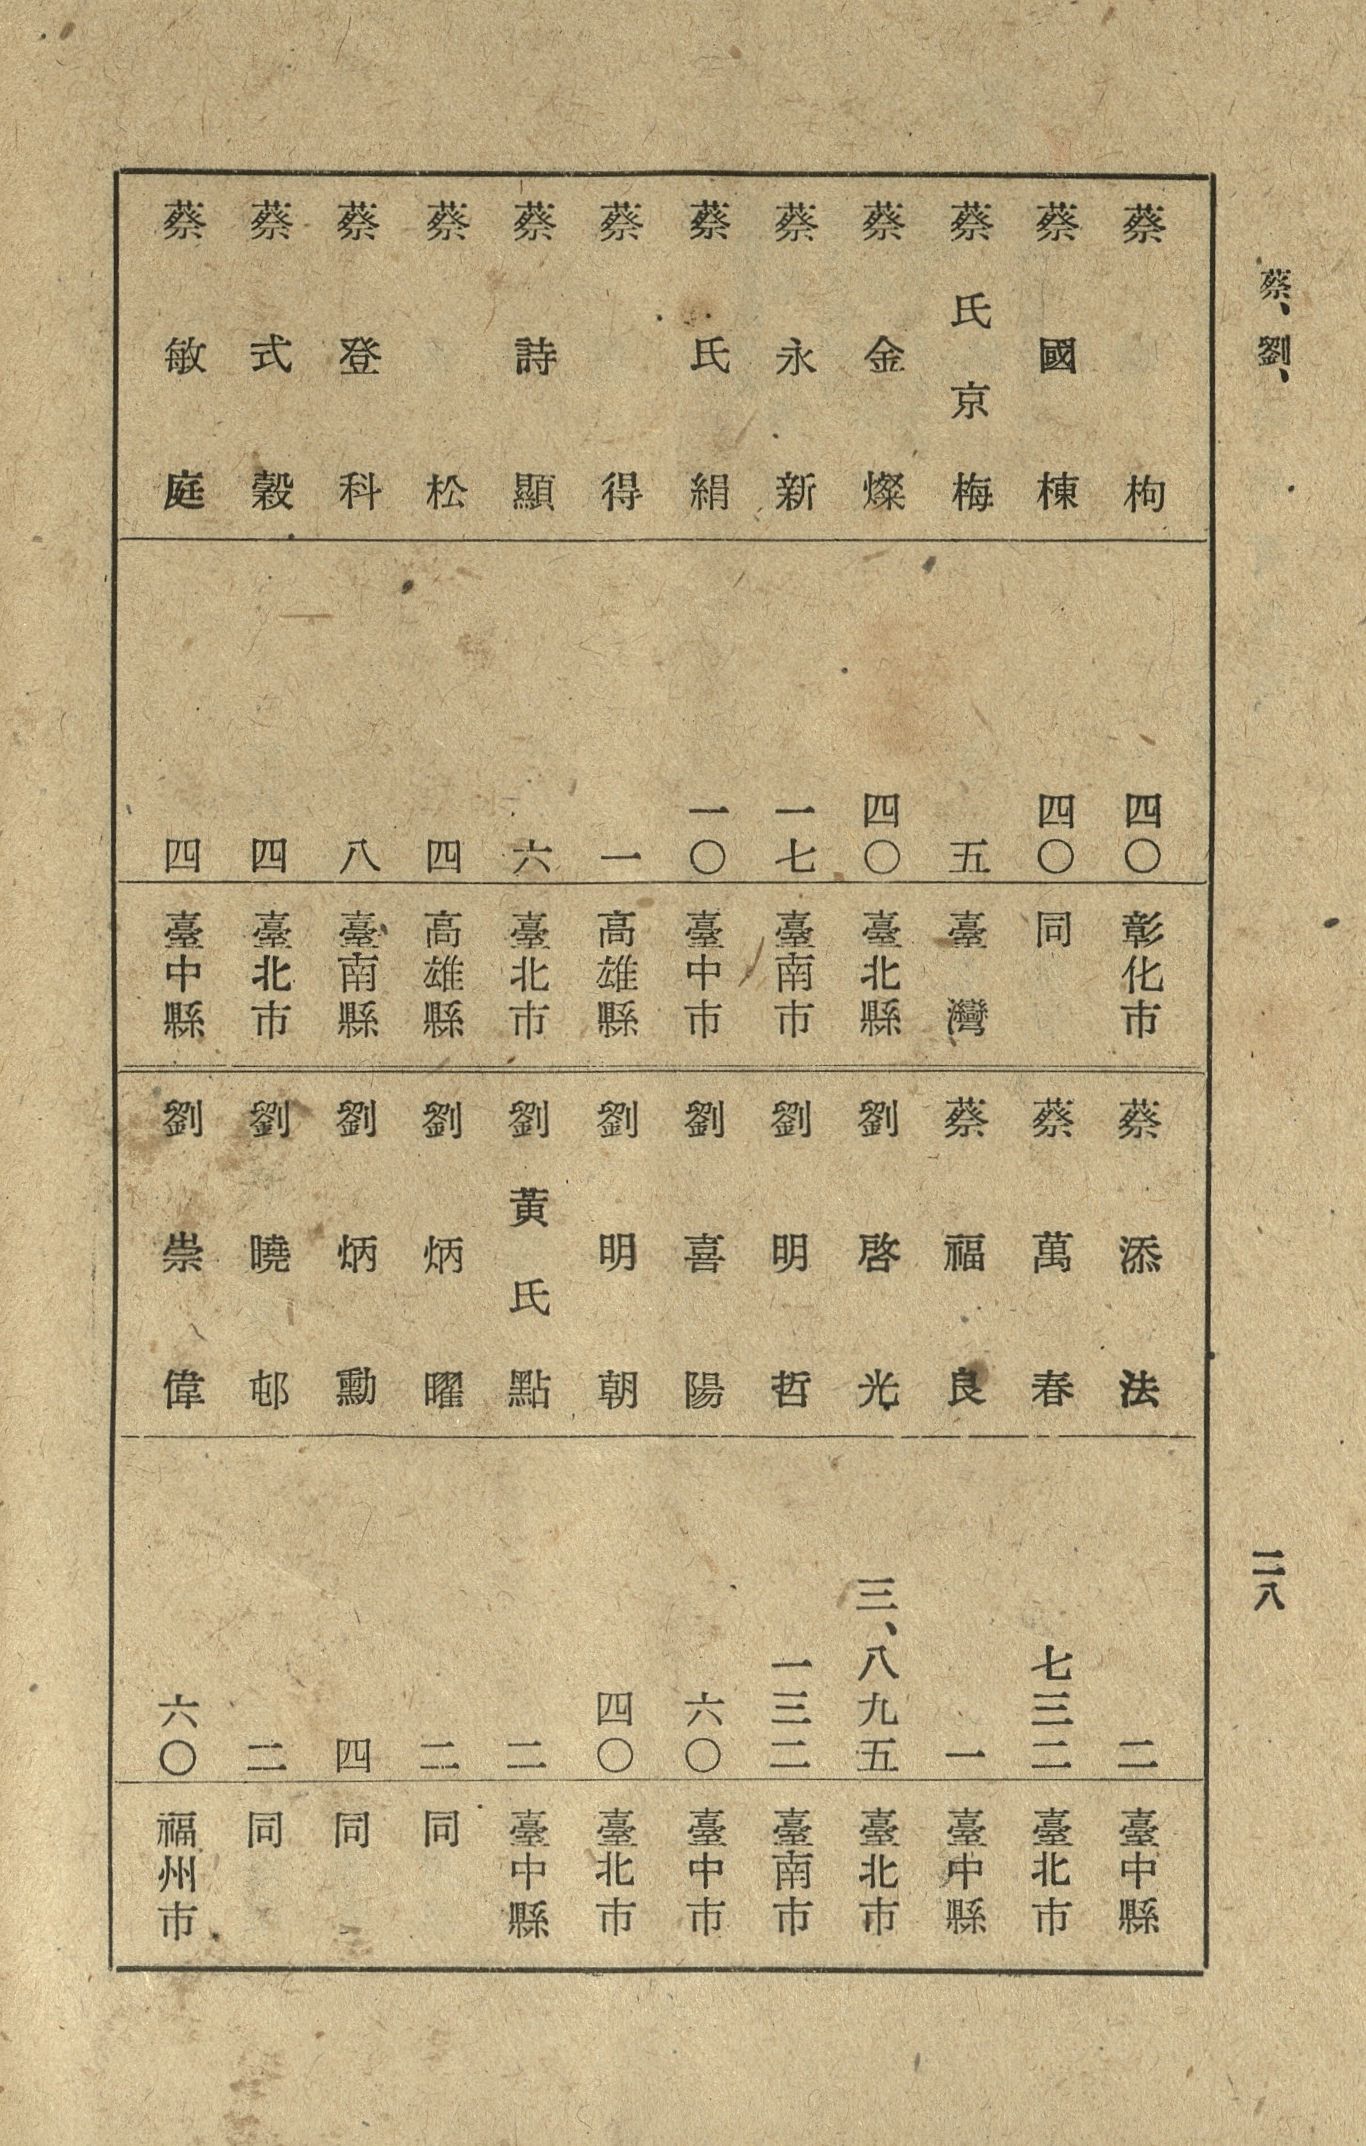 蔡、劉、
二八
蔡枸 四〇 彰化市
蔡國棟 四〇 同
蔡氏京梅 五 臺灣
蔡金燦 四〇 臺北縣
蔡永新 一七 臺南市
蔡氏絹 一〇 臺中市
蔡得 一 高雄縣
蔡詩顯 六 臺北市
蔡松 四 高雄縣
蔡登科 八 臺南縣
蔡式穀 四 臺北市
蔡敏庭 四 臺中縣
蔡添法 二 臺中縣
蔡萬春 七三二 臺北市
蔡福良 一 臺中縣
劉啓光 三、八九五 臺北市
劉明哲 一三二 臺南市
劉喜陽 六〇 臺中市
劉明朝 四〇 臺北市
劉黃氏點 二 臺中縣
劉炳曜 二 同
劉炳勳 四 同
劉曉邨 二 同
劉崇偉 六〇 福州市